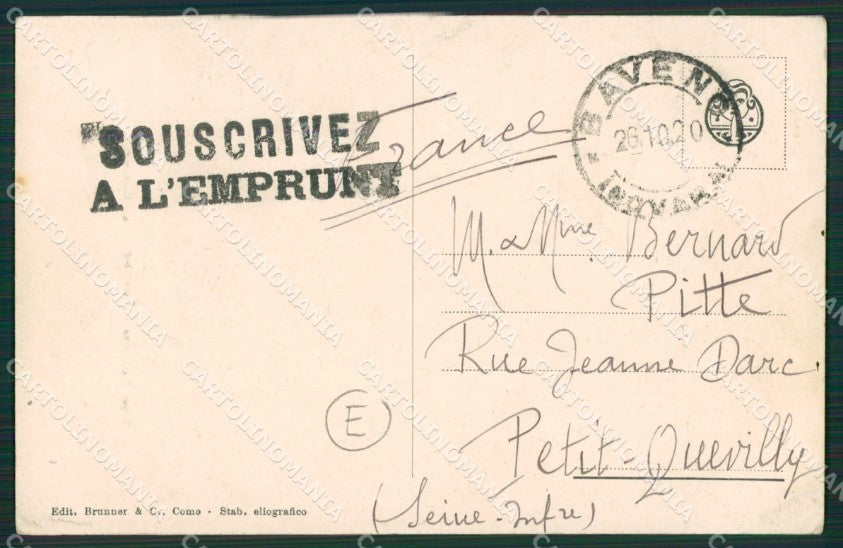 SOUSCRIVEZ
A L'EMPRUNT
France
BAVENO
26.10.20
M. & Mme. Bernard
Pitte
Rue Jeanne Darc.
Petit-Quevilly
(Seine-Infre)
E
Edit. Brunner & C., Como - Stab. eliografico
CARTOLINOMANIA